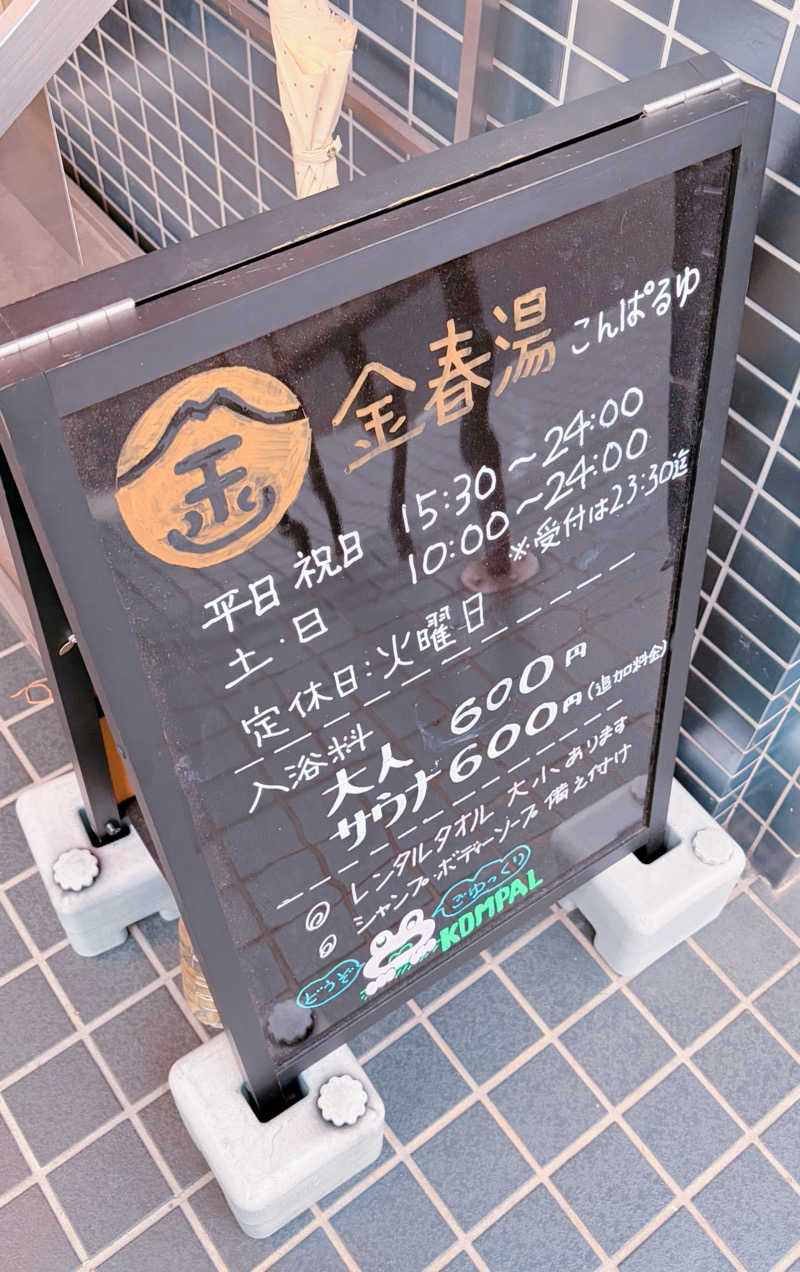 金
金春湯 こんぱるゆ
平日 祝日 15:30〜24:00
土・日 10:00〜24:00
※受付は23:30迄
定休日:火曜日
入浴料
大人 600円
サウナ 600円(追加料金)
◎ レンタルタオル 大小あります
◎ シャンプー・ボディーソープ備え付け
ごゆっくり
どうぞ
KOMPAL